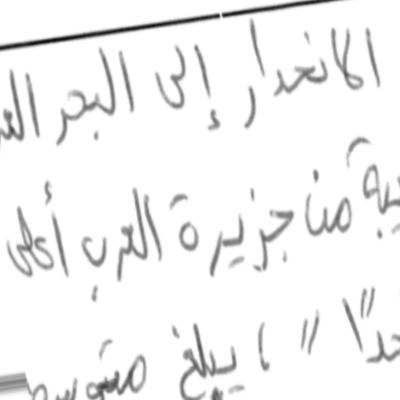 الانحدار إلى البحر
من جزيرة العرب أعلى
" ، يبلغ متوسط